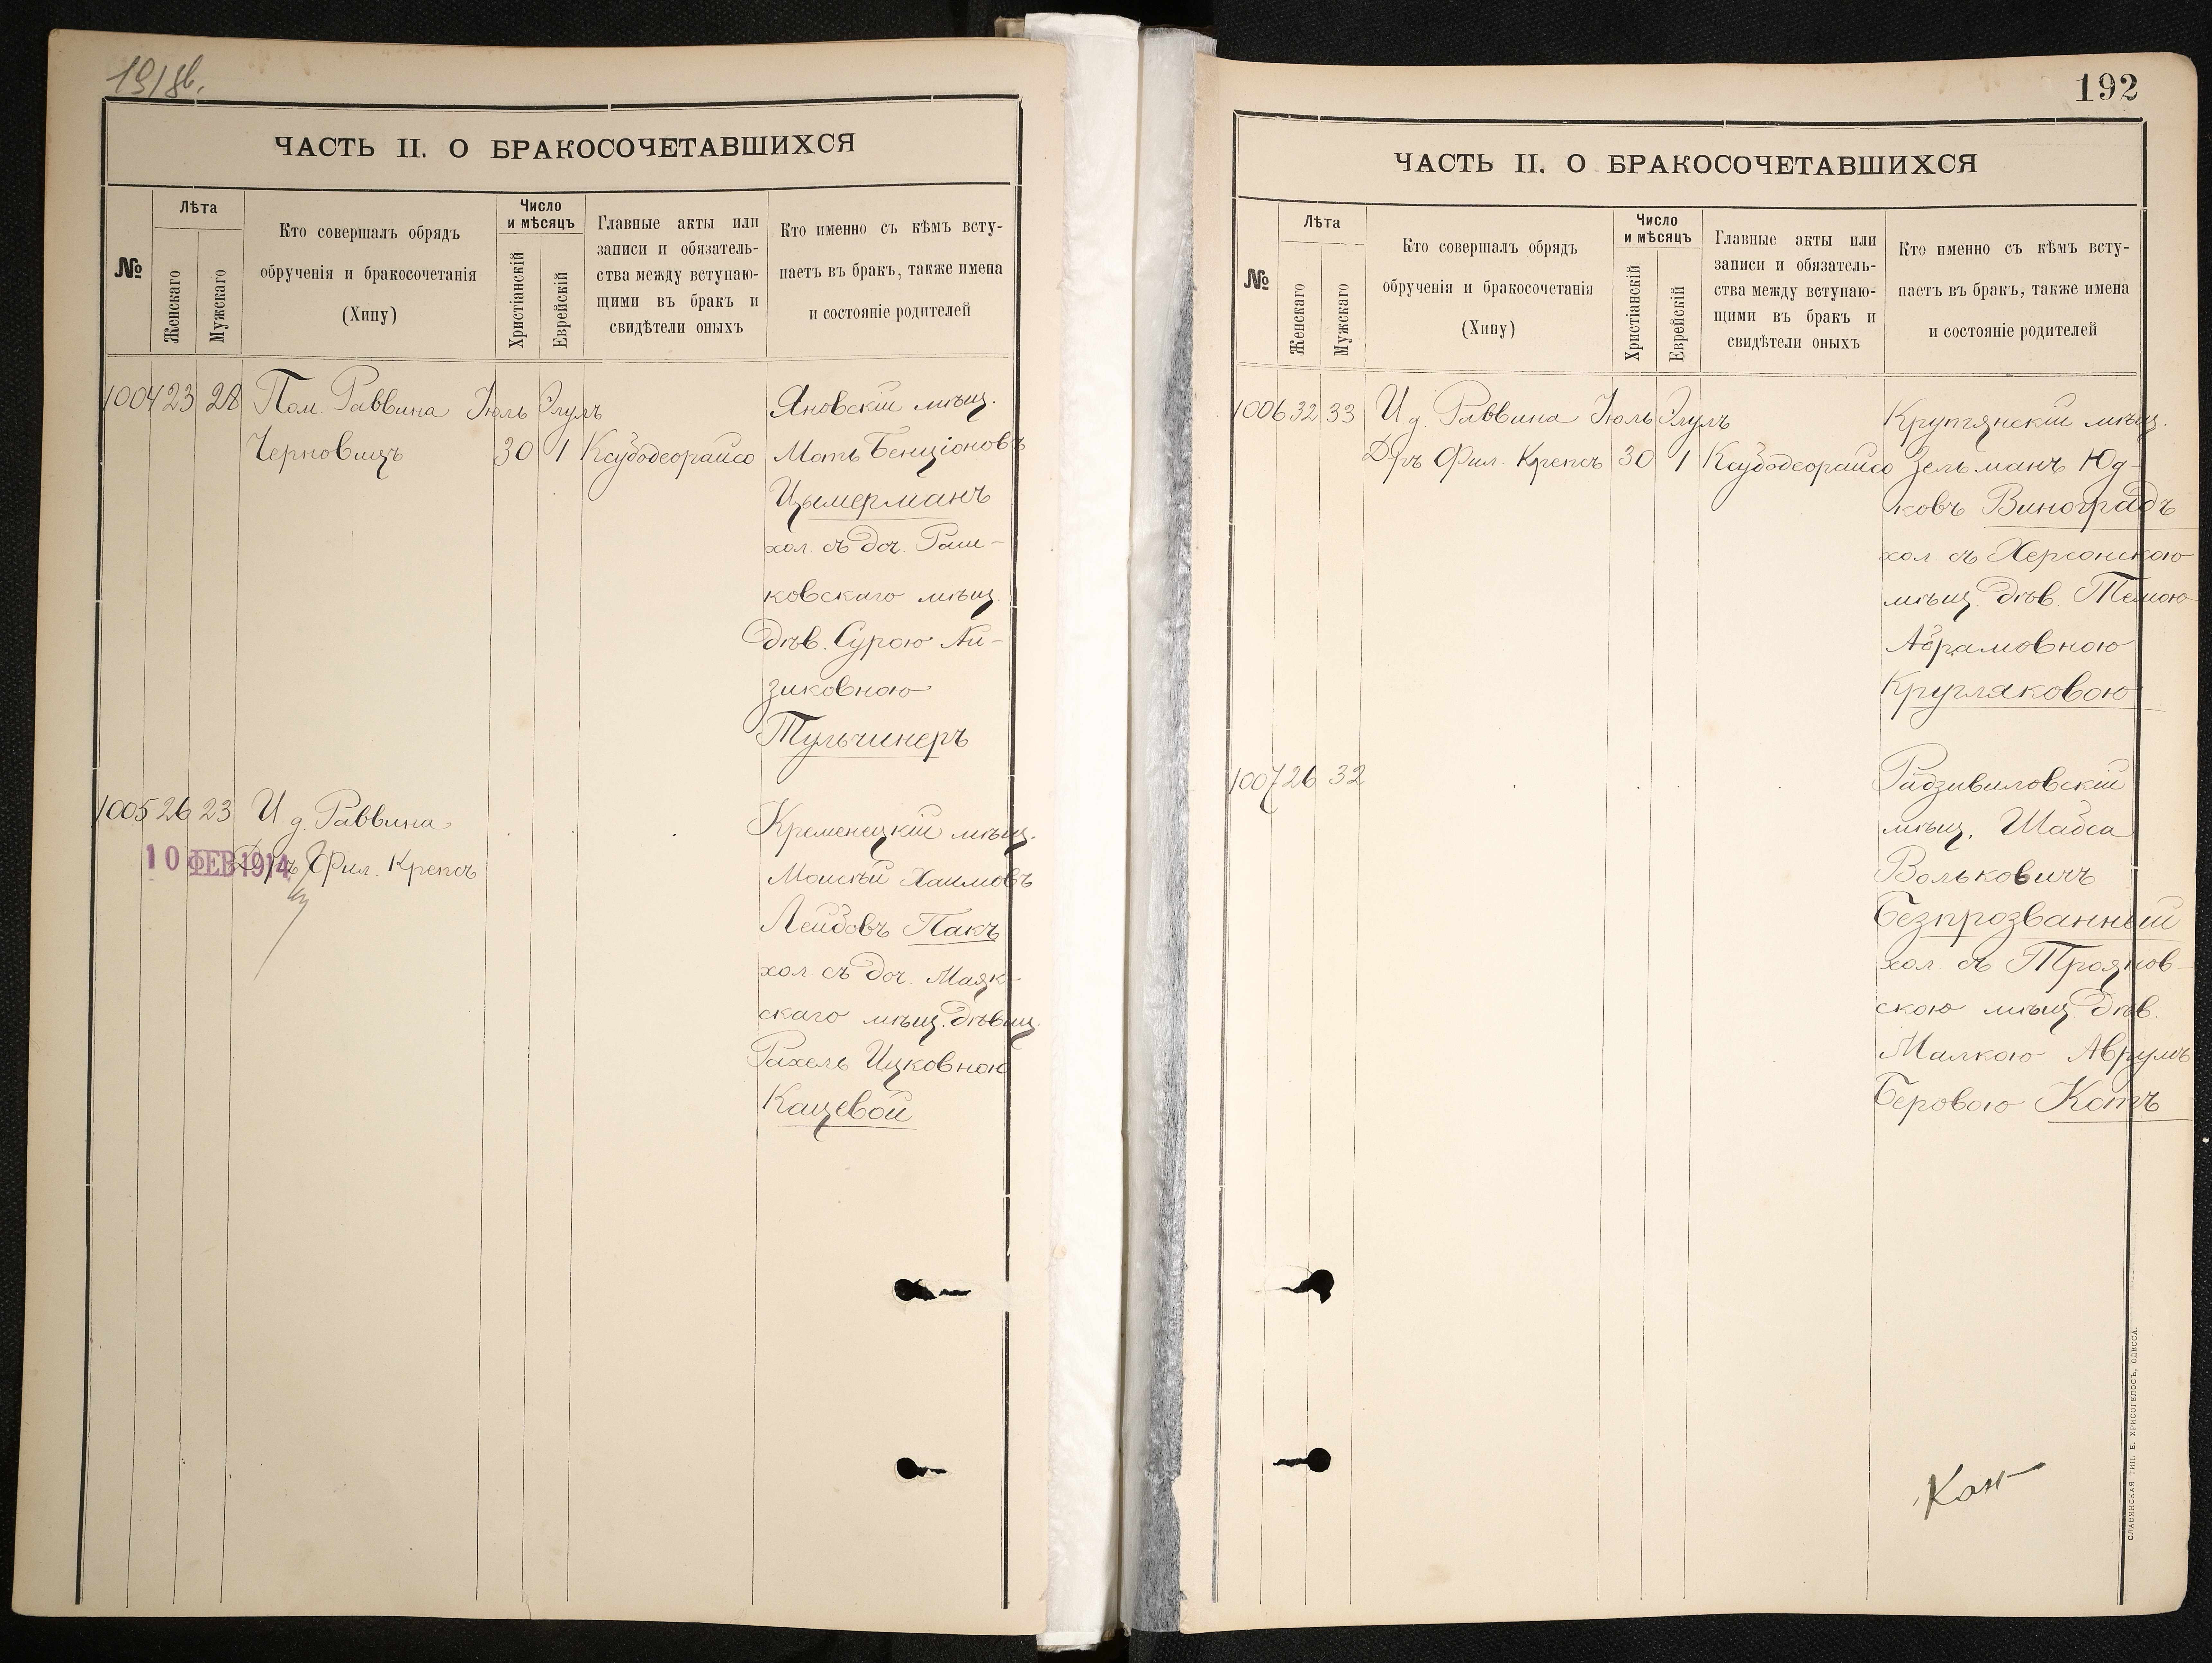 ЧАСТЬ II. О БРАКОСОЧЕТАВШИХСЯ
№
Лѣта
Женскаго
Мужскаго
Кто совершалъ обрядъ
обрученія и бракосочетанія
(Хипу)
Число
и мѣсяцъ
Христіанскій
Еврейскій
Главные акты или
записи и обязатель-
ства между вступаю-
щими въ бракъ и
свидѣтели оныхъ
Кто именно съ кѣмъ всту-
паетъ въ бракъ, также имена
и состояніе родителей
1004 23 28 Пом. Раввина Іюль Элулъ
Черновицъ 30 1 Ксубодеорайсо
Яновскій мѣщ.
Моть Бенціоновъ
Цымерманъ
хол. съ доч. Раш-
ковскаго мѣщ.
дѣв. Сурою Ай-
зиковною
Тульчинеръ
1005 26 23 И. д. Раввина
Д-ръ Фил. Крепсъ
10 ФЕВ 1914
Кременецкій мѣщ.
Моисѣй Хаимовъ
Лейбовъ Пакъ
хол. съ доч. Маяк-
скаго мѣщ. дѣвиц.
Рахель Ицковною
Кацевой
192
ЧАСТЬ II. О БРАКОСОЧЕТАВШИХСЯ
№
Лѣта
Женскаго
Мужскаго
Кто совершалъ обрядъ
обрученія и бракосочетанія
(Хипу)
Число
и мѣсяцъ
Христіанскій
Еврейскій
Главные акты или
записи и обязатель-
ства между вступаю-
щими въ бракъ и
свидѣтели оныхъ
Кто именно съ кѣмъ всту-
паетъ въ бракъ, также имена
и состояніе родителей
1006 32 33 И. д. Раввина Іюль Элулъ
Д-ръ Фил. Крепсъ 30 1 Ксубодеорайсо
Крутянскій мѣщ.
Зельманъ Юд-
ковъ Виноградъ
хол. съ Херсонскою
мѣщ. дѣв. Темою
Абрамовною
Кругляковою
1007 26 32
Радзивиловскій
мѣщ. Шабса
Вольковичъ
Безпрозванный
хол. съ Трояков-
скою мѣщ. дѣв.
Малкою Аврумъ
Беровою Котъ
СЛАВЯНСКАЯ ТИП. Е. ХРИСОГЕЛОСЪ, ОДЕССА.